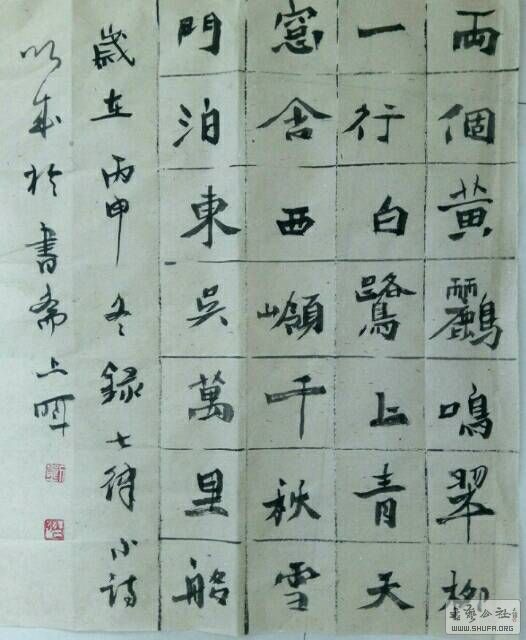 兩個黃鸝鳴翠柳
一行白鷺上青天
窓含西嶺千秋雪
門泊東吳萬里船
歲在丙申冬錄七律小詩
於書齋上
書藝公社
WWW.SHUFA.ORG